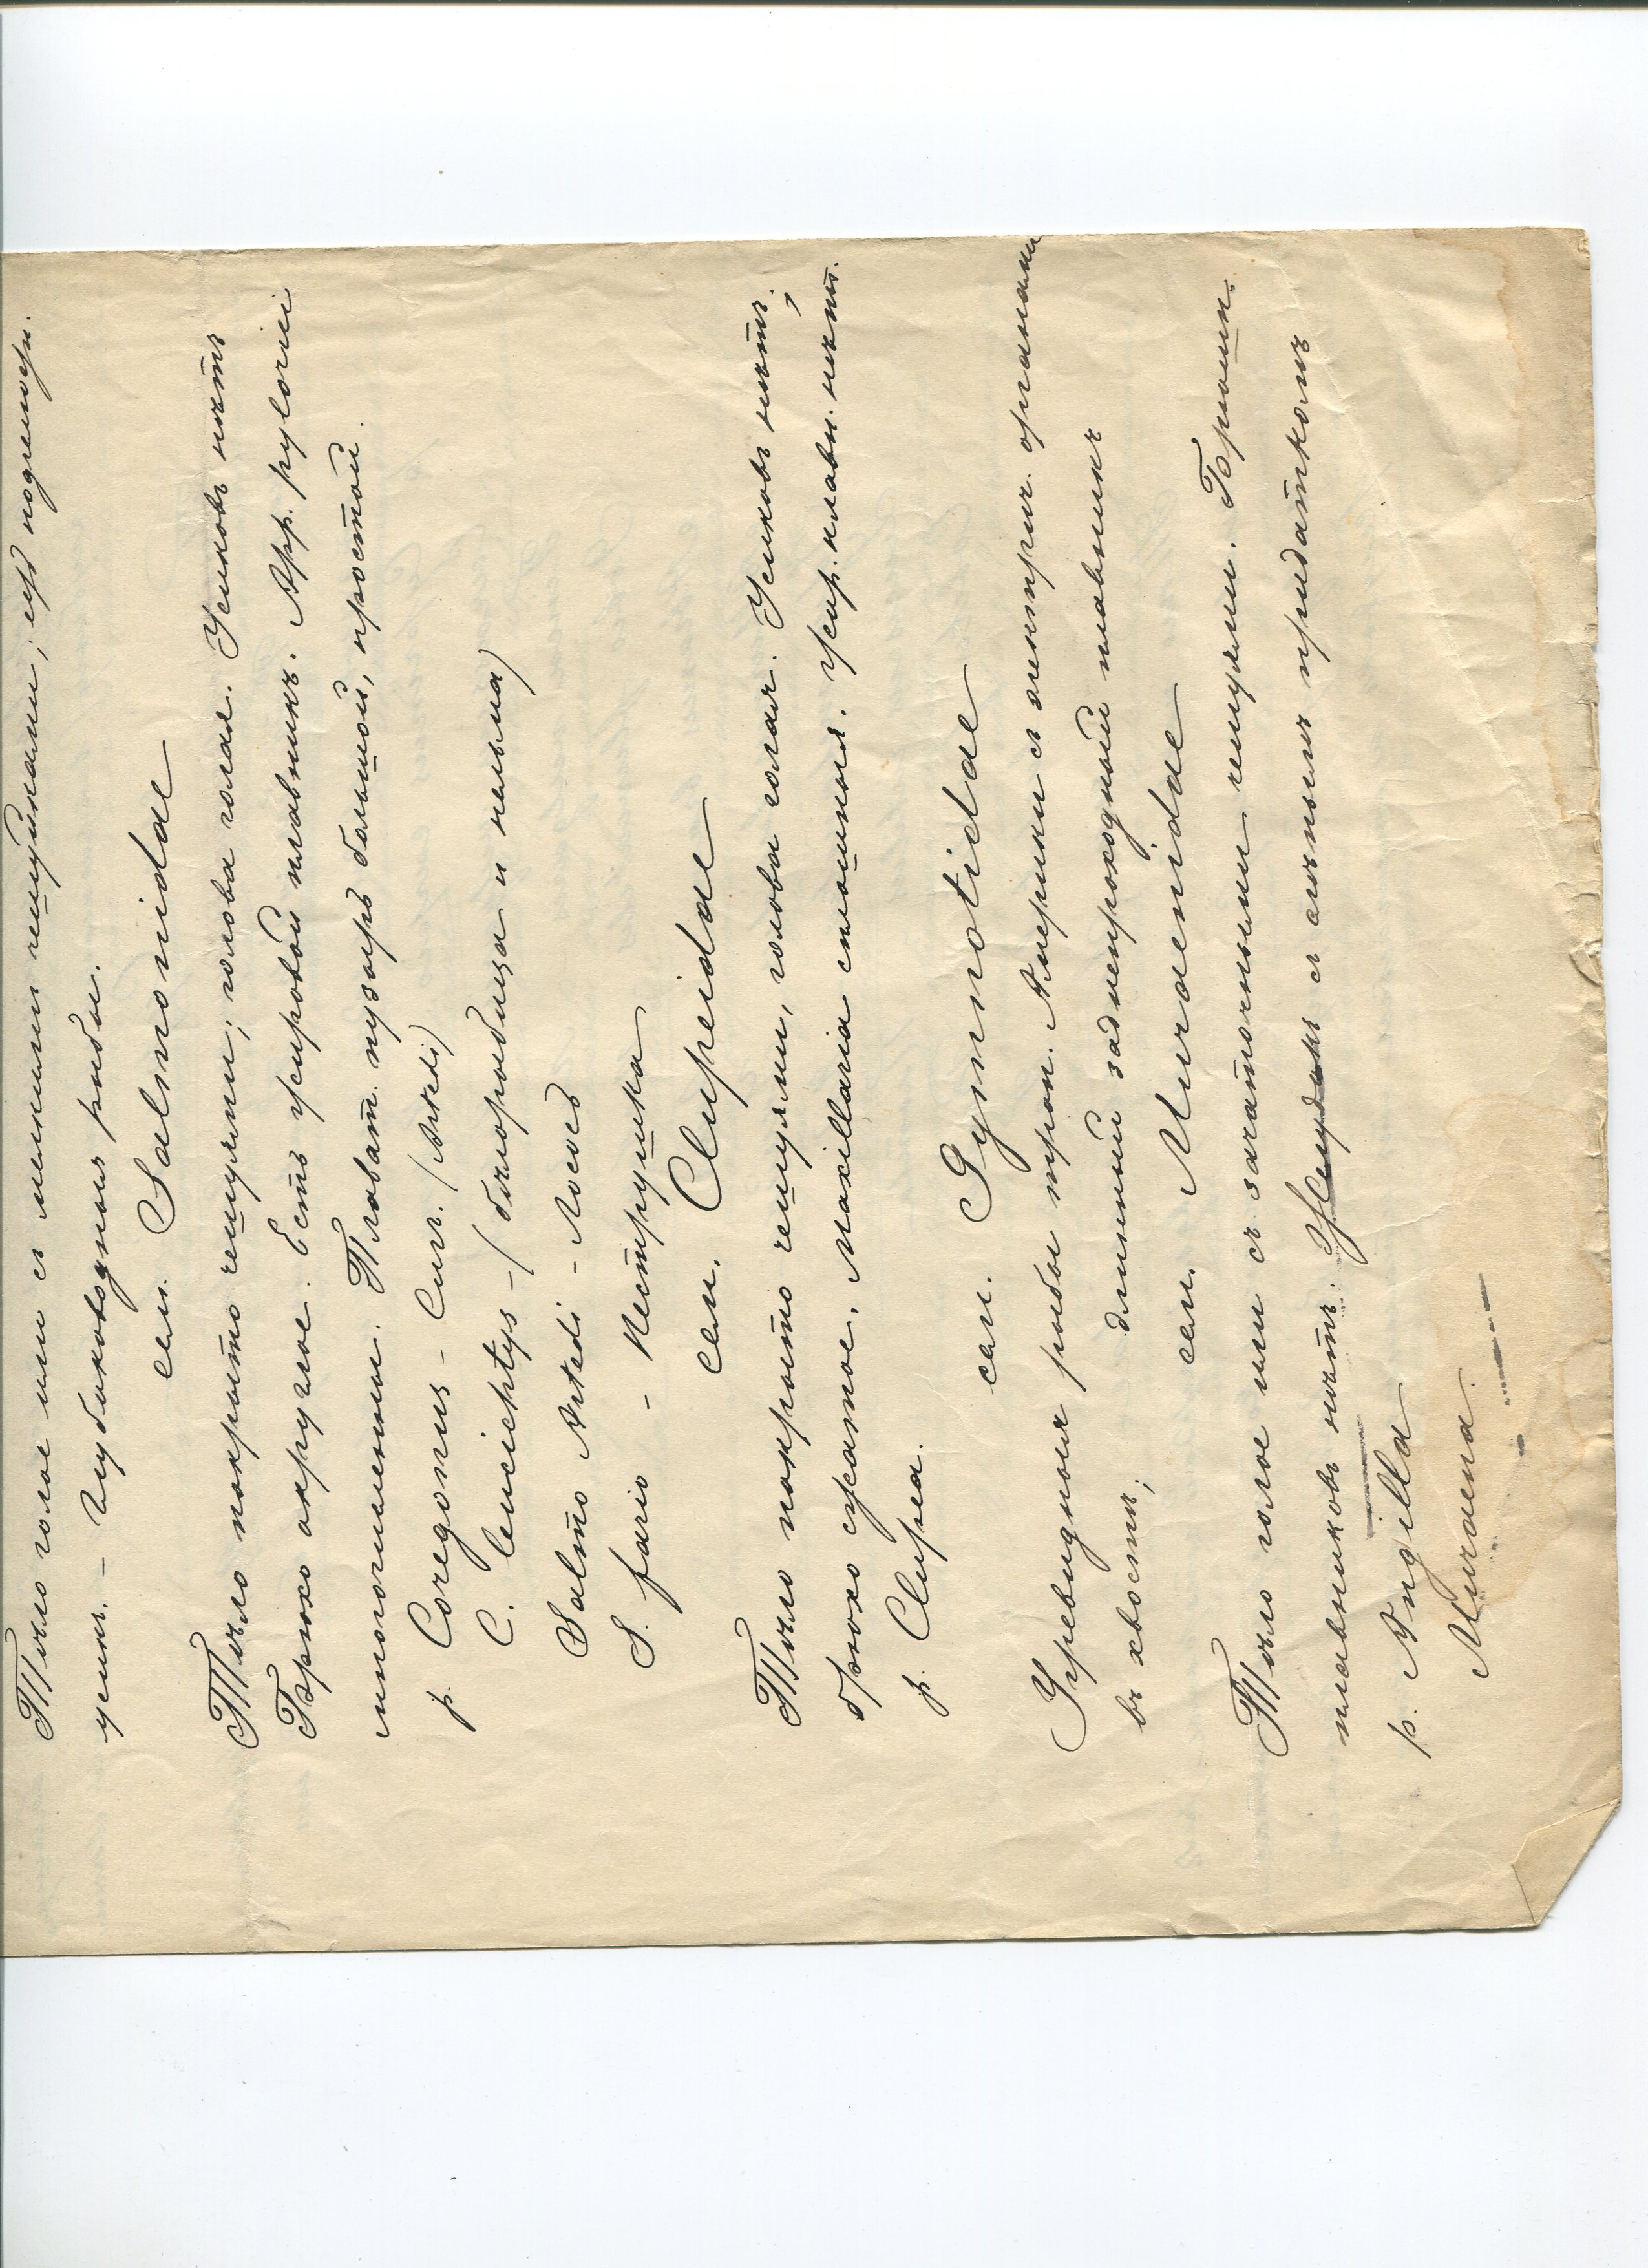 Тѣло голое или съ мелкими чешуйками; есть
усики. - Глубоководныя рыбы.
сем. Salmonidae
Тѣло покрыто чешуями; голова голая. Усиковъ нѣтъ
Брюхо округлое. Есть жировой плавникъ. App. pylorici
многочисленны. Плават. пузырь большой, простой.
р. Coregonus - Сиги. (Artedi)
C. leucichtys - (бѣлорыбица и нельма)
Salmo Artedi - Лосось
S. fario - Пеструшка
сем. Clupeidae
Тѣло покрыто чешуями, голова голая. Усиковъ нѣтъ,
брюхо сжатое. Maxillaria сплошная. Жир. плавн. нѣтъ.
р. Clupea.
сем. Gymnotidae
Угревидныя рыбы троп. Америки съ электрич. органами
въ хвостѣ; длинный заднепроходный плавникъ
сем. Muraenidae
Тѣло голое или съ зачаточными чешуями. Брюшн.
плавниковъ нѣтъ. Желудокъ съ слѣпымъ придаткомъ
р. Angilla
Muraena.